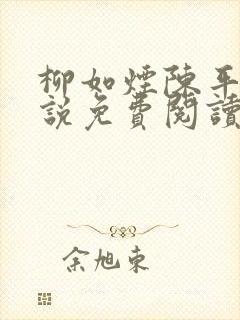 柳如煙陳平
說免費閱讀
余旭東